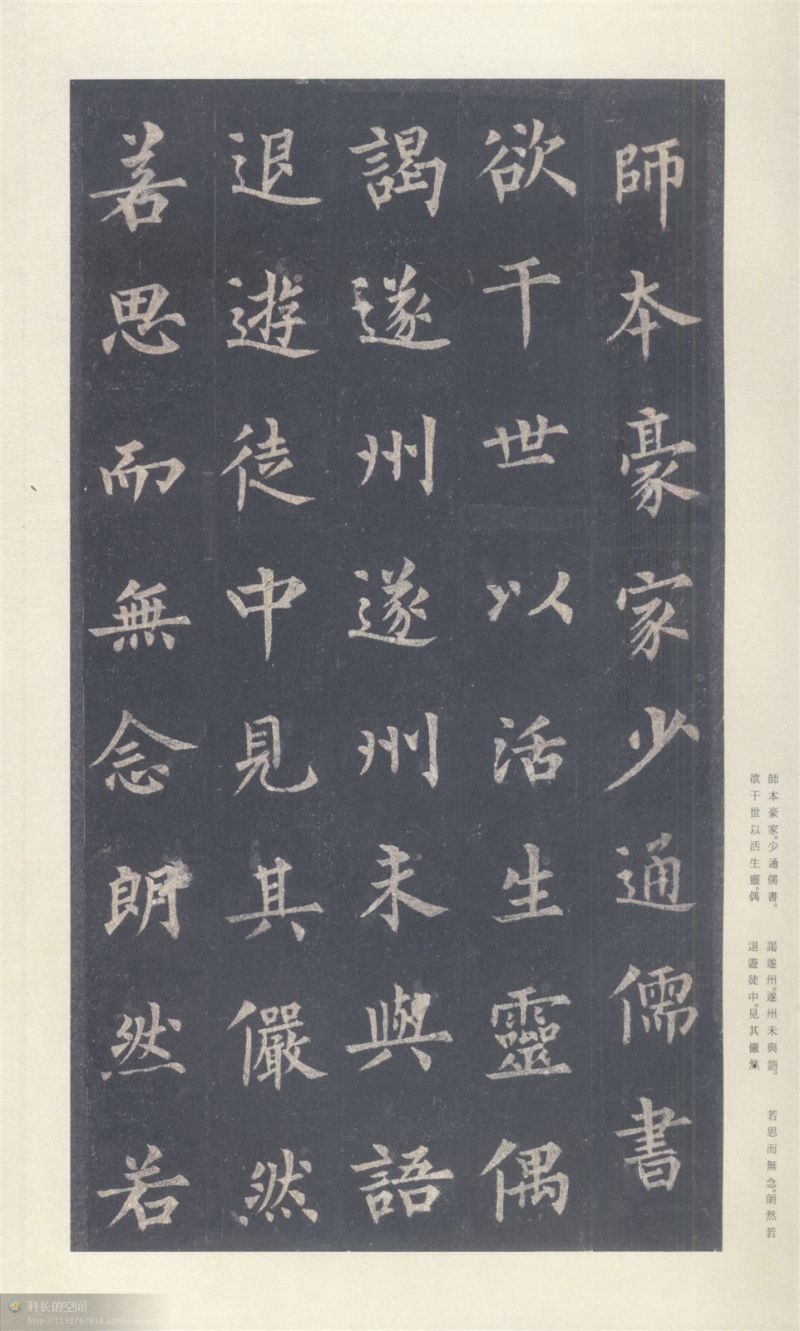 師本豪家少通儒書
欲干世以活生靈偶
謁遂州遂州未與語
退遊徒中見其儼然
若思而無念朗然若
師本豪家。少通儒書。
欲干世以活生靈。偶
謁遂州。遂州未與語。
退遊徒中。見其儼然
若思而無念。朗然若
科长的空间